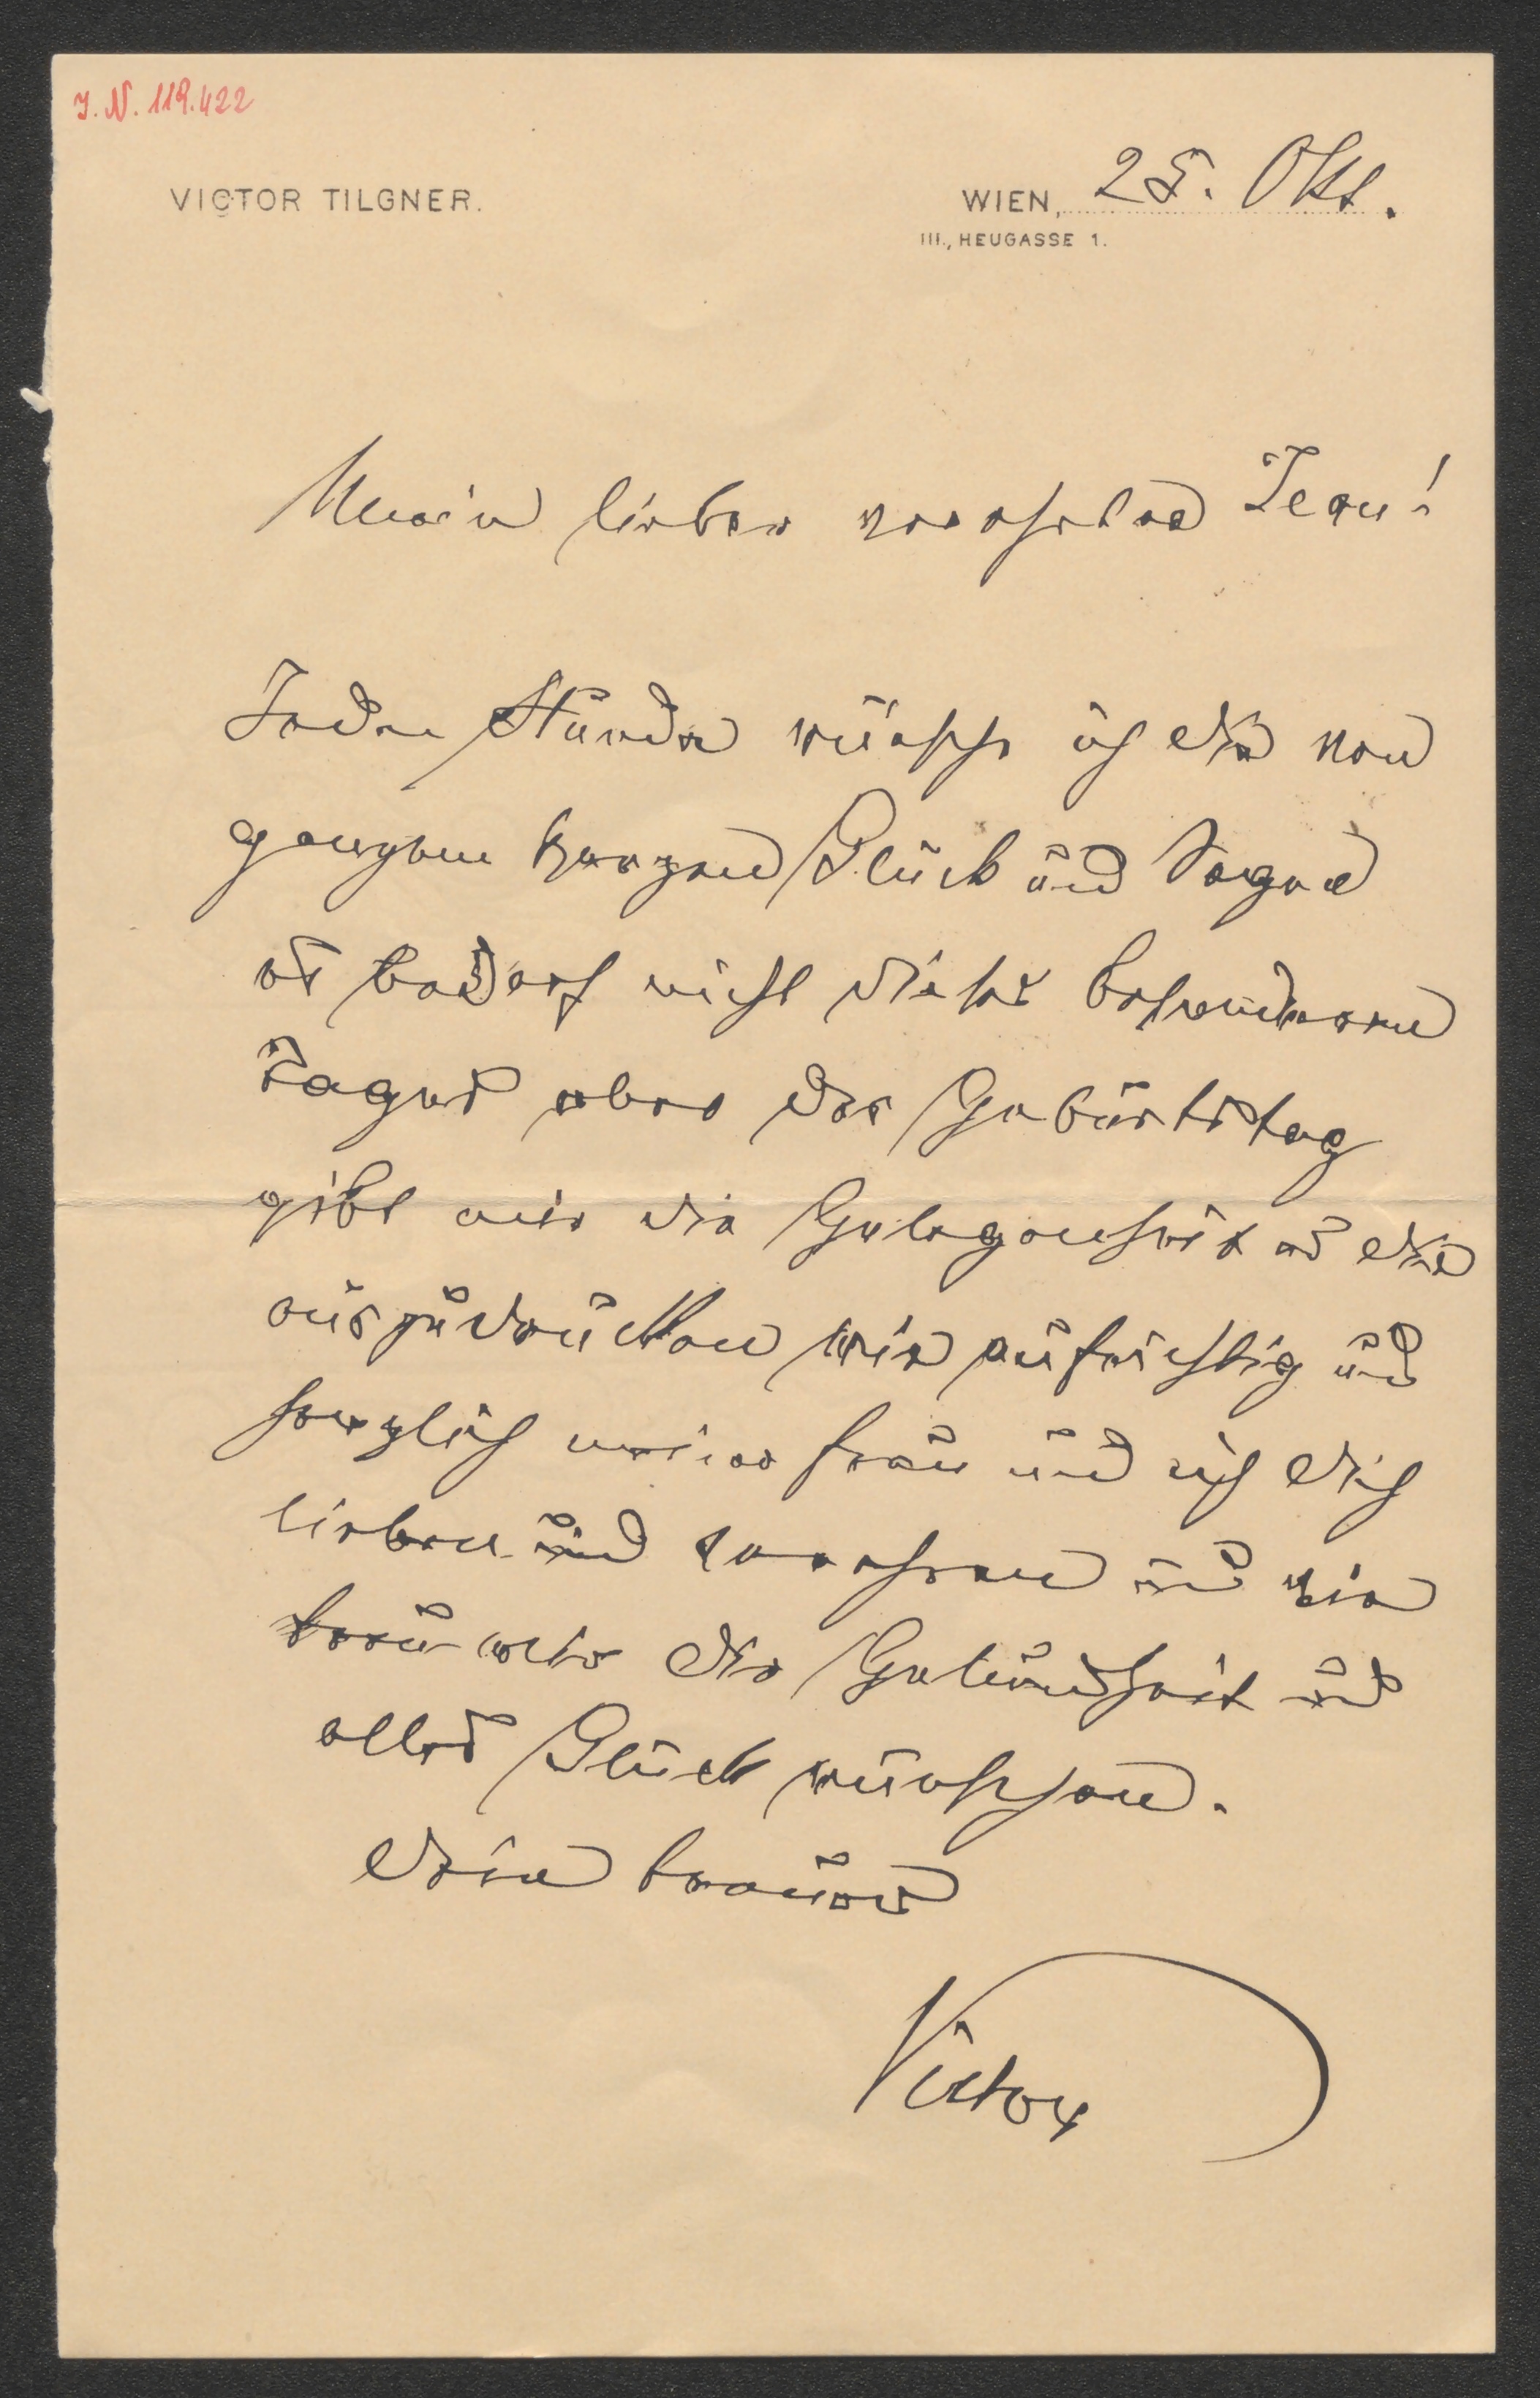 J. N. 119.422
VICTOR TILGNER.
WIEN, 25. Okt.
III., HEUGASSE 1.
Mein lieber verehrter Jean!
Jede Stunde wünsche ich Dir von
ganzem Herzen Glück und Segen
es bedarf nicht dieses besonderen
Tages aber der Geburtstag
gibt mir die Gelegenheit es Dir
auszudrücken wie aufrichtig und
herzlich meine Frau und ich Dich
lieben und verehren und wie
wir Dir Gesundheit und
alles Glück wünschen.
Dein treuer
Victor